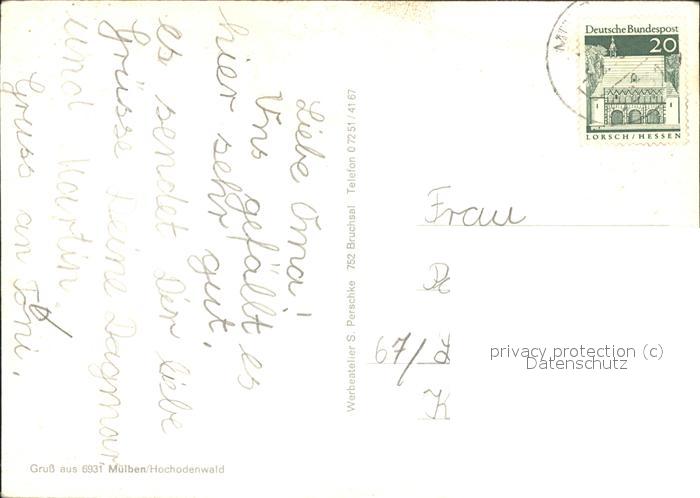 Liebe Oma!
Uns gefällt es
hier sehr gut,
es sendet Dir liebe
Grüsse Deine Dagmar,
und Martin.
Gruss an Toni.
Werbeatelier S. Perschke 752 Bruchsal Telefon 0 72 51 / 41 67
Gruß aus 6931 Mülben/Hochodenwald
Deutsche Bundespost
20
LORSCH/HESSEN
Frau
67/L
K
privacy protection (c)
Datenschutz